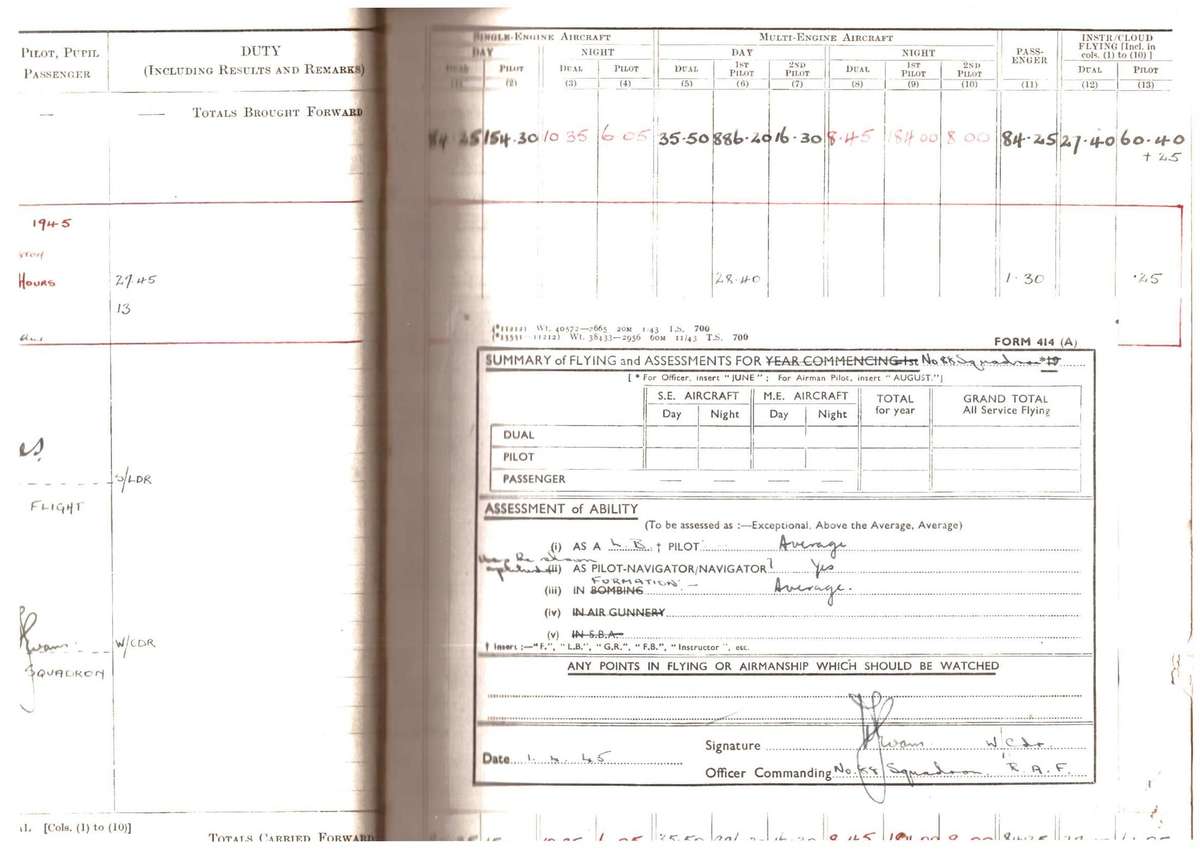 PILOT, PUPIL
PASSENGER
DUTY
(INCLUDING RESULTS AND REMARKS)
SINGLE-ENGINE AIRCRAFT
MULTI-ENGINE AIRCRAFT
PASS-
ENGER
INSTR/CLOUD
FLYING [Incl. in
cols. (1) to (10)]
DAY NIGHT DAY NIGHT
DUAL PILOT DUAL PILOT DUAL 1ST PILOT 2ND PILOT DUAL 1ST PILOT 2ND PILOT DUAL PILOT
(1) (2) (3) (4) (5) (6) (7) (8) (9) (10) (11) (12) (13)
— —— TOTALS BROUGHT FORWARD
84.25 154.30 10 35 6 05 35.50 886.20 16.30 8.45 184 00 8 00 84.25 27.40 60.40
+ 25
1945
HOURS 27.45 28.40 1.30 .25
13
(*11212) Wt. 40572—2665 20M 1/43 T.S. 700
(*13551—11212) Wt. 38433—2956 60M 11/43 T.S. 700
FORM 414 (A)
SUMMARY of FLYING and ASSESSMENTS FOR YEAR COMMENCING 1st No 88 Squadron *19
[ * For Officer, insert "JUNE" ; For Airman Pilot, insert "AUGUST."]
S.E. AIRCRAFT M.E. AIRCRAFT TOTAL for year GRAND TOTAL All Service Flying
Day Night Day Night
DUAL
PILOT
PASSENGER — — — —
S/LDR
FLIGHT
ASSESSMENT of ABILITY
(To be assessed as :—Exceptional, Above the Average, Average)
(i) AS A L.B. † PILOT Average
(ii) AS PILOT-NAVIGATOR/NAVIGATOR Yes
FORMATION
(iii) IN BOMBING Average.
(iv) IN AIR GUNNERY
(v) IN S.B.A.
† Insert :—"F.", "L.B.", "G.R.", "F.B.", "Instructor", etc.
W/CDR
SQUADRON
ANY POINTS IN FLYING OR AIRMANSHIP WHICH SHOULD BE WATCHED
Signature W/Cdr.
Date 1. 4. 45
Officer Commanding No. 88 Squadron R.A.F.
[Cols. (1) to (10)]
TOTALS CARRIED FORWARD